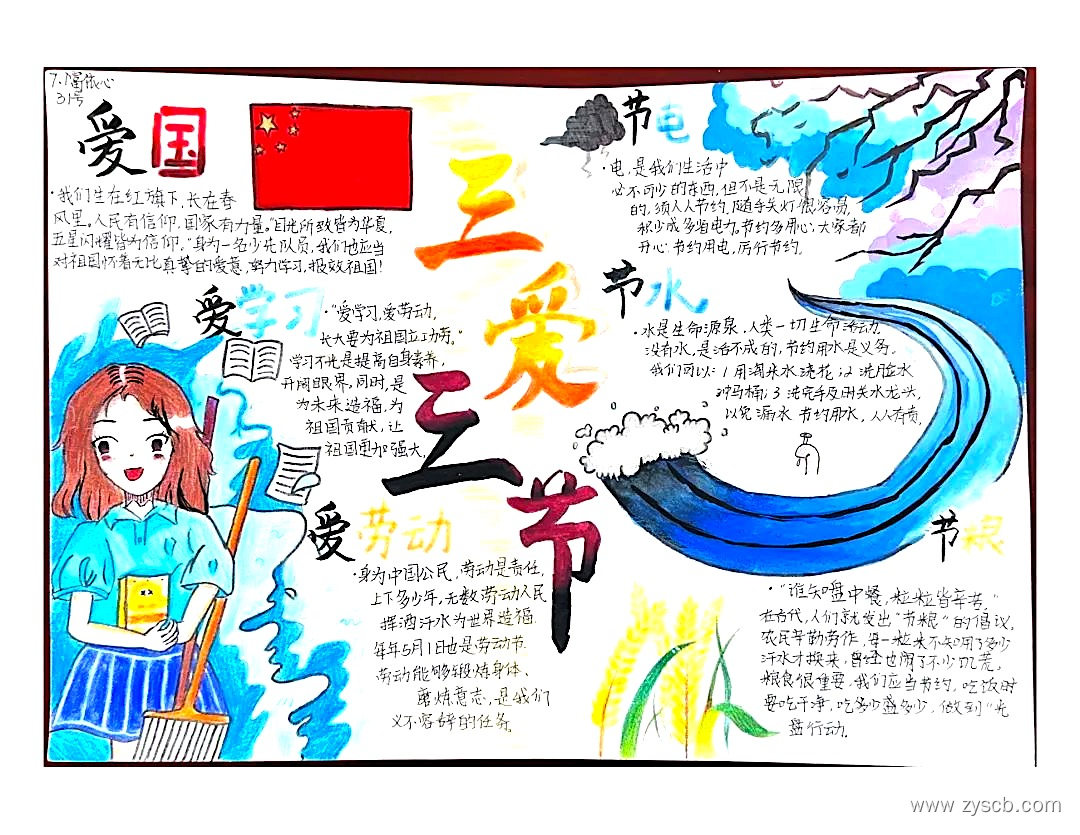 7.1
31号
爱国
·我们生在红旗下,长在春
风里。人民有信仰,国家有力量。"目光所致皆为华夏,
五星闪耀皆为信仰。"身为一名少先队员,我们也应当
对祖国怀着无比真挚的爱意,努力学习,报效祖国!
爱学习
·"爱学习,爱劳动,
长大要为祖国立功劳。"
学习不光是提高自身素养,
开阔眼界,同时,是
为未来造福,为
祖国贡献,让
祖国更加强大。
爱劳动
·身为中国公民,劳动是责任,
上下多少年,无数劳动人民
挥洒汗水为世界造福.
每年5月1日也是劳动节.
劳动能够锻炼身体、
磨炼意志,是我们
义不容辞的任务。
三
爱
三
节
节电
·电,是我们生活中
必不可少的东西,但不是无限
的,须人人节约,随手关灯很容易,
积少成多省电力。节约多用心,大家都
开心 节约用电,厉行节约。
节水
·水是生命源泉,人类一切生命活动
没有水,是活不成的,节约用水是义务。
我们可以:1 用淘米水浇花;2 洗脸水
冲马桶;3 洗完手及时关水龙头,
以免漏水 节约用水,人人有责,
节粮
·"谁知盘中餐,粒粒皆辛苦"
在古代,人们就发出"节粮"的倡议,
农民辛勤劳作,每一粒米不知用了多少
汗水才换来,曾经也闹了不少饥荒,
粮食很重要,我们应当节约,吃饭时
要吃干净,吃多少盛多少,做到"光
盘行动.
www.zyscb.com